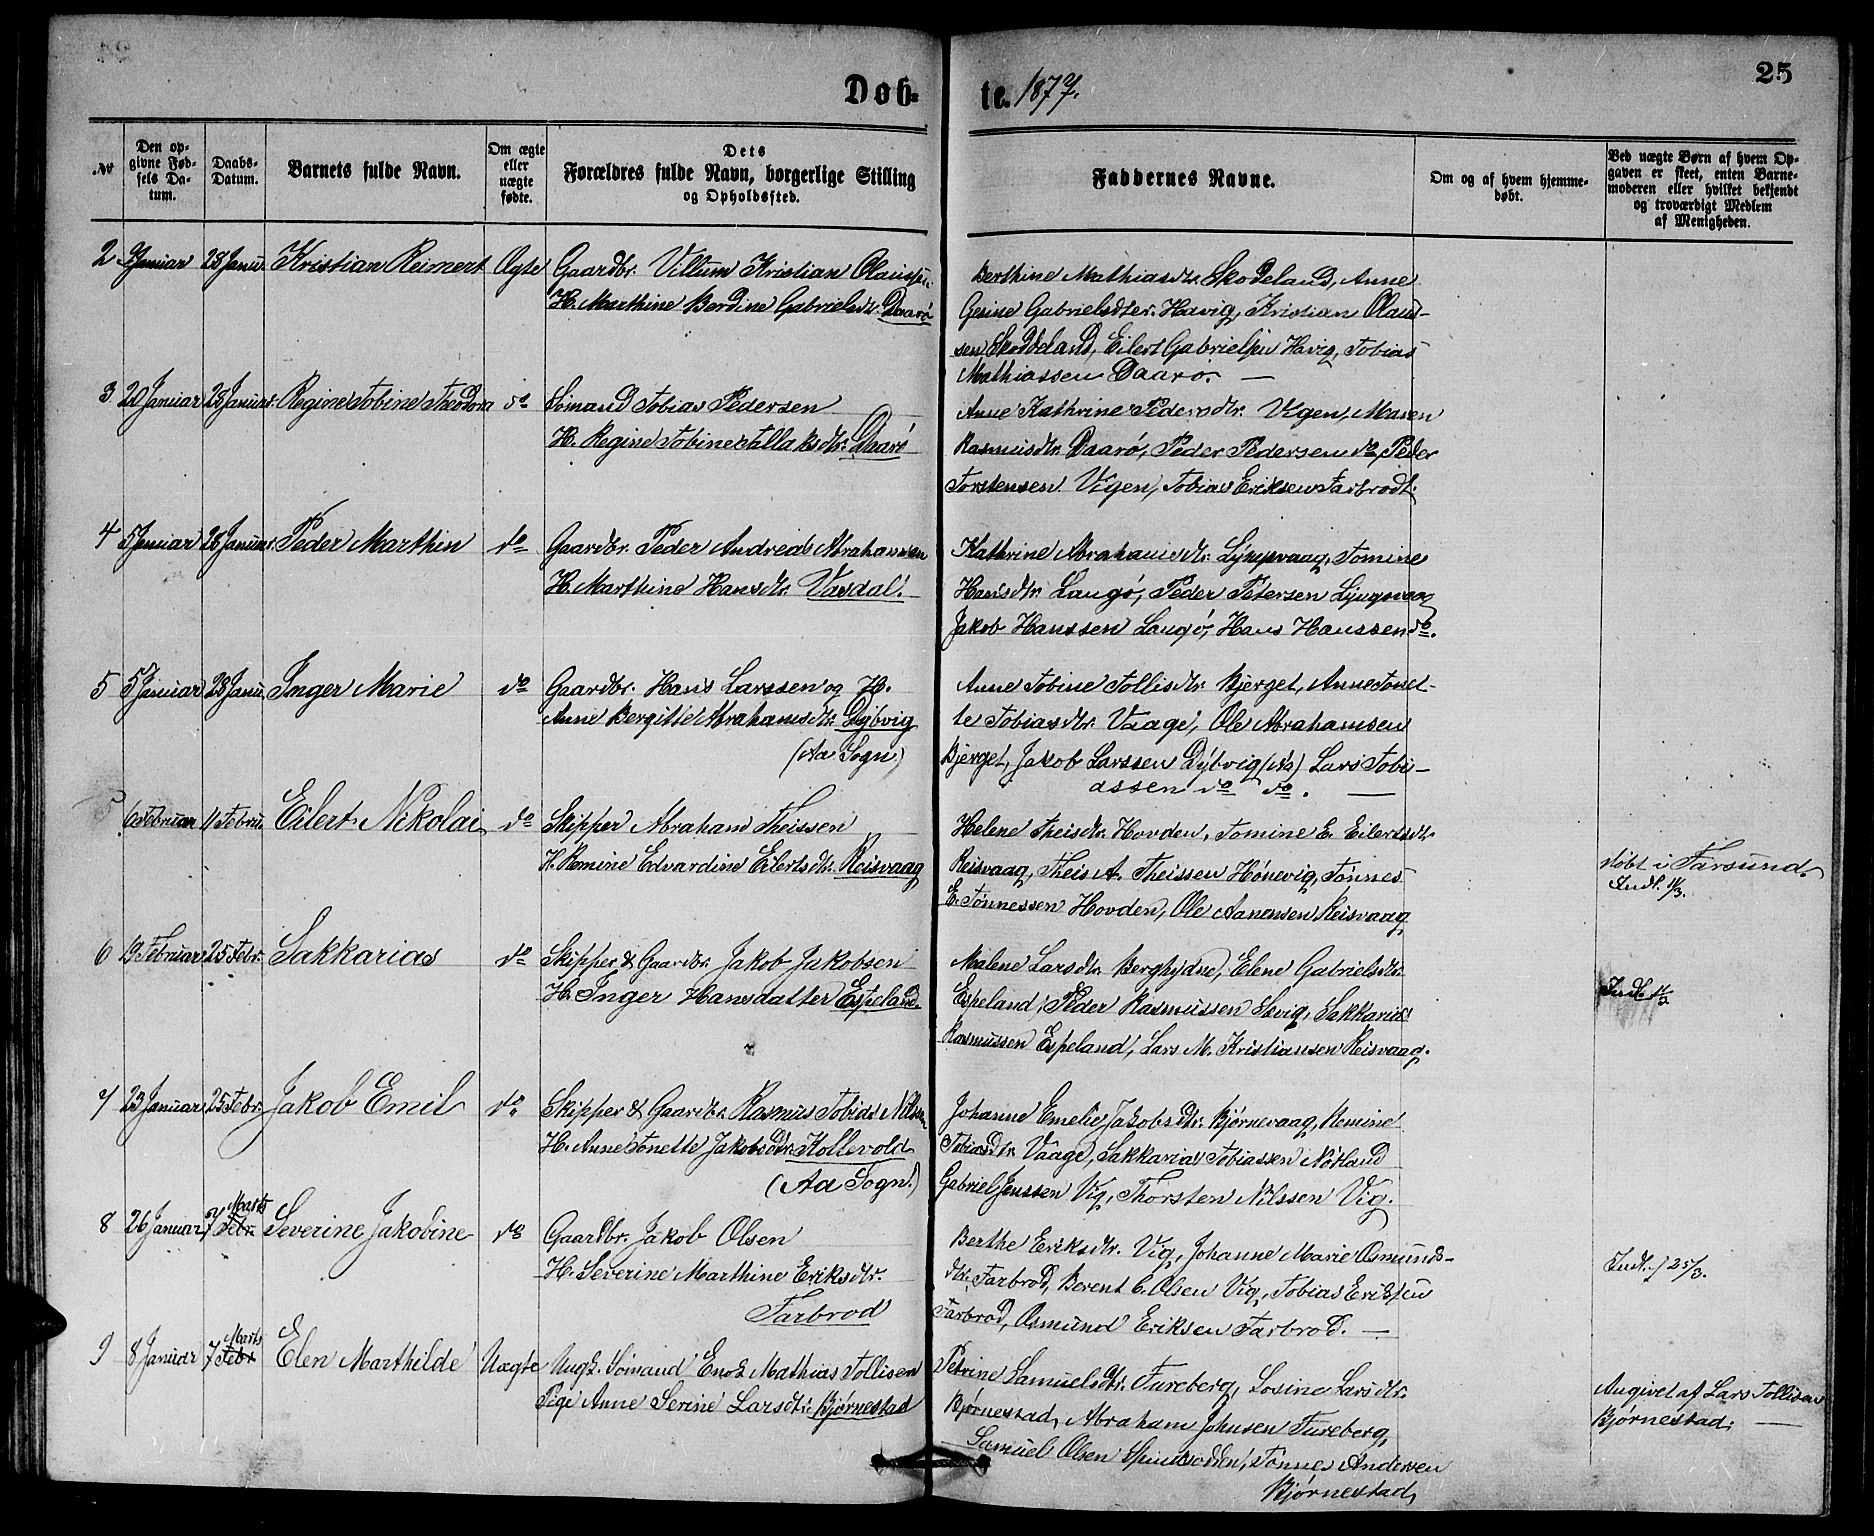 Døb-
te. 1877.
25
No
Den op-
givne Fød-
sels Da-
tum.
Daabs-
Datum.
Barnets fulde Navn.
Om ægte
eller
uægte
fødte.
Dets
Forældres fulde Navn, borgerlige Stilling
og Opholdssted.
Faddernes Navne.
Om og af hvem hjemme-
døbt.
Ved uægte Børn af hvem Op-
gaven er skeet, enten Barne-
moderen eller hvilket bekjendt
og troværdigt Medlem
af Menigheden.
2 Januar 28 Janu. Kristian Reinert Ægte Gaardbr. Villum Kristian Olaussen
H. Marthine Berdine Gabrielsdtr. Daarø
Berthine Mathiasdtr. Skodeland, Anne
Gesine Gabrielsdter. Havig, Kristian Olaus-
sen Skoddeland, Eilert Gabrielsen Havig, Tobias
Mathiassen Daarø. —
3 20 Januar 28 Januar. Regine Tobine Theodora do Sömand Tobias Pedersen
H. Regine Tobine Tallaksdtr. Daarö
Anne Kathrine Pedersdtr. Vegen, Maren
Rasmusdtr. Daarø, Peder Pedersen do, Peder
Torstensen Vigen, Tobias Eriksen Farbrodt.
4 5 Januar 28 Januar. Peder Marthin do Gaardbr. Peder Andreas Abrahamsen
H. Marthine Hansdtr. Vasdal.
Kathrine Abrahamsdtr. Lyngsvaag, Tomine
Hansdtr. Langø, Peder Petersen Lyngsvaag
Jakob Hanssen Langø, Hans Hanssen do.
5 5 Januar 28 Janu. Inger Marie do Gaardbr. Hans Larssen og H.
Anne Bergitte Abrahamsdtr. Dybvig
(Aa Sogn.)
Anne Tobine Tollisdtr. Bjerget, Anne Tonet-
te Tobiasdtr. Vaage, Ole Abrahamsen
Bjerget, Jakob Larssen Dybvig (Aa) Lars Tobi-
assen do do. —
5 6 Februar 11 Febru. Eilert Nikolai do Skipper Abraham Theissen
H. Remine Edvardine Eilertsdtr. Reisvaag
Helene Theisdtr. Hovden, Tomine E. Eilertsdtr.
Reisvaag, Theis A. Theissen Hónevig, Tønnes
E. Tönnessen Hovden, Ole Aanensen Reisvaag
döbt i Farsund.
Indl. 11/3.
6 19 Februar 25 Febr. Sakkarias do Skipper & Gaardbr. Jakob Jakobsen
H. Inger Hansdatter Espeland
Malene Larsdtr. Berghydne, Elene Gabrielsdtr.
Espeland, Peder Rasmussen Sævig, Sakkarias
Rasmussen Espeland, Lars M. Kristiansen Reisvaag.
7 23 Januar 25 Febr. Jakob Emil do Skipper & Gaardbr. Rasmus Tobias Nilsen
H. Anne Tonette Jakobsdtr. Kollevold
(Aa Sogn.)
Johanne Emelie Jakobsdtr. Bjørnevaag, Remine
Tobiasdtr. Vaage, Sakkarias Tobiassen Nötland
Gabriel Jenssen Vig, Thorsten Nilssen Vig.
8 26 Januar 7 Febr. Marts Severine Jakobine do Gaardbr. Jakob Olsen
H. Severine Marthine Eriksdtr.
Farbrod
Berthe Eriksdtr. Vig, Johanne Marie Osmunds-
dtr. Farbrod, Berent C. Olsen Vig, Tobias Eriksen
Farbrod, Osmund Eriksen Farbrod. —
Indl. 25/3.
9 8 Januar 7 Febr Marts Elen Marthilde Uægte Ungk. Sömand Enok Mathias Tollisen
Pige Anne Serine Larsdtr. Bjørnestad
Petrine Samuelsdtr. Fureberg, Losine Larsdtr.
Bjørnestad, Abraham Johnsen Fureberg,
Samuel Olsen Spindsodden, Tønnes Andersen
Bjørnestad,
Angivet af Lars Tollisen
Bjørnestad. —